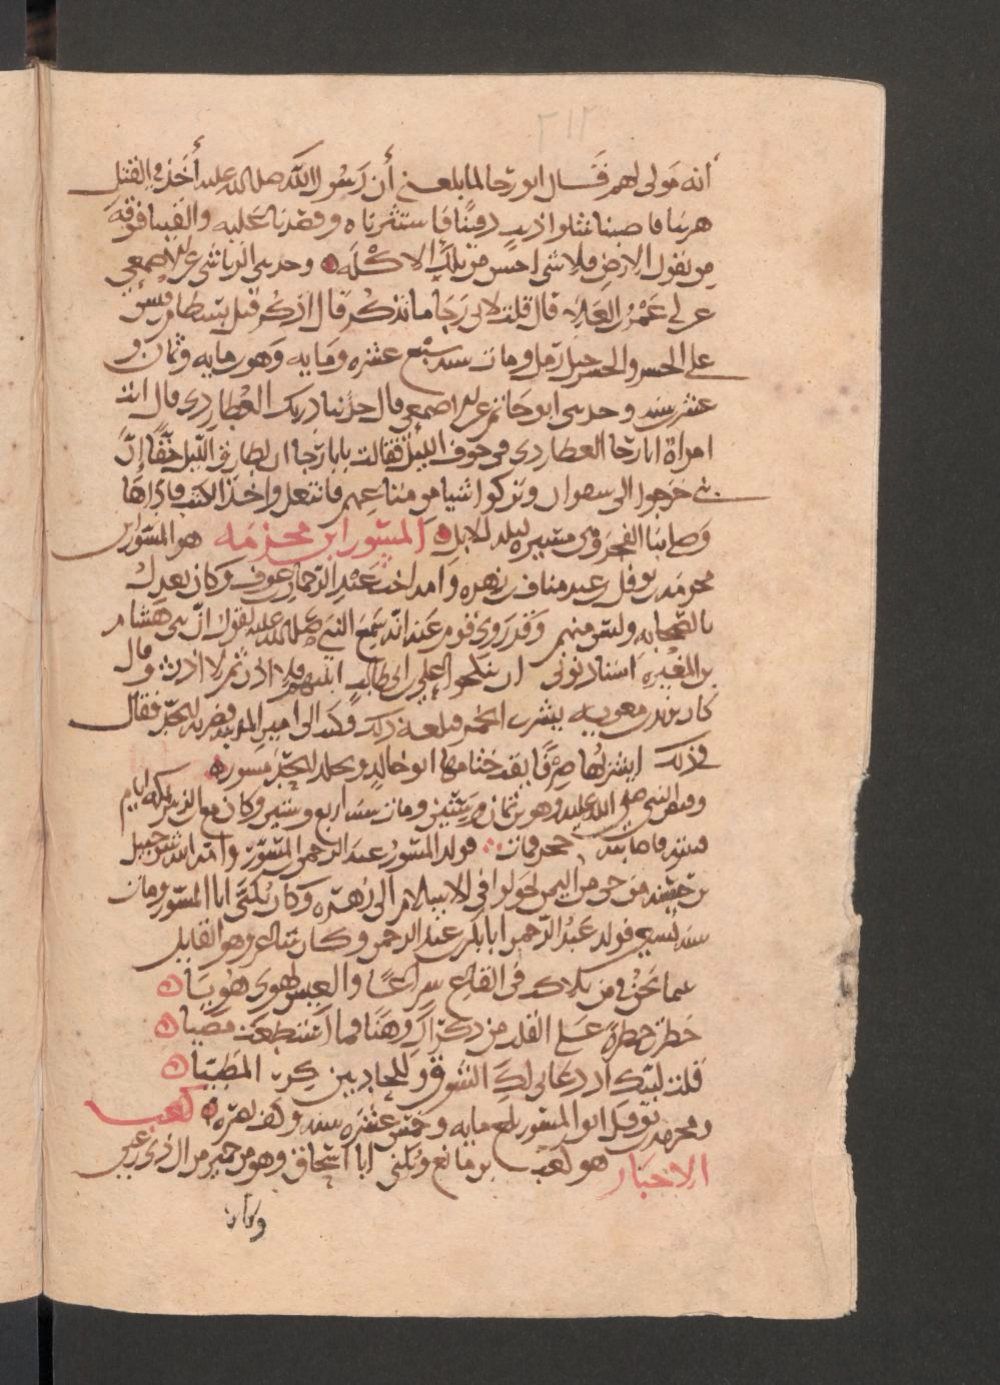 ٢١٢
أنه مولى لهم قال ابو رجا لما بلغني أن رسول الله صلى الله عليه أخذ في القتل
هربنا فاصبنا شلو ارنب دفينا فاستثرناه وفصدنا عليه والقينا فوقه
من بقول الارض فلا انسى احسن من تلك الاكله وحدثني الرياشي عن الاصمعي
عن ابي عمرو بن العلا قال قلت لابي رجا ما تذكر قال اذكر قتل بسطام بن قيس
على الحسن والحسن حبل رمل ومات سنه سبع عشره ومايه وهو بن مايه وثمان و
عشرين سنه وحدثني ابو حاتم عن الاصمعي قال حدثنا العطاردي قال اتت
امراة ابا رجا العطاردي في جوف الليل فقالت يابا رجا ان لطارق الليل حقا إن
بني خرجوا الى سفوان وتركوا شيا من متاعهم فانتعل واخذ الكتب فاداها
وصلى بنا الفجر وهي مسيره ليله للابل المسور ابن مخرمه هو المسور ابن
مخرمه بن نوفل بن عبد مناف بن زهره وامه اخت عبد الرحمان بن عوف وكان يعدل
بالصحابه وليس منهم وقد روى قوم عنه انه سمع النبي صلى الله عليه يقول ان بني هشام
بن المغيره استاذنوني ان ينكحوا علي بن ابي طالب ابنتهم فلا اذن ثم لا اذن وقال
كان يزيد بن معويه يشرب الخمر فبلغه ذلك فكتب الى امير المدينه فضربه الحد فقال
في ذلك ايشربها صرفا يفت ختامها ابو خالد ويجلد الحد مسور
وقبض النبي صلى الله عليه وهو بن ثمان سنين ومات سنه اربع وستين وكان مع ابن الزبير بمكه ايام
فتنته فاصابته حجر فمات فولد المسور عبد الرحمن بن المسور وامه ابنة شرحبيل
بن حسنه من حي من اليمن تحولوا في الاسلام الى زهره وكان يكنى ابا المسور ومات
سنه تسعين فولد عبد الرحمن ابا بكر بن عبد الرحمن وكان شاعرا وهو القايل
بينما نحن من بلاكث في القاع سراعا والعيس تهوي هويا
خطرت خطرة على القلب من ذكراك وهنا فما استطعت مضيا
قلت لبيك اذ دعاني لك الشوق وللحاديين كرا المطيا
ومخرمه بن نوفل ابو المسور بلغ مايه وخمس عشره سنه وكف بصره كعب
الاخبار هو كعب بن ماتع ويكنى ابا اسحاق وهو من حمير من ال ذي رعين
وكان